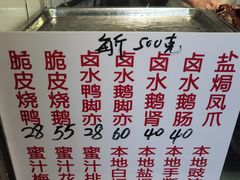 500克
脆皮烧鸭 28
脆皮烧鹅 55
卤水鸭脚亦 28
卤水鹅脚亦 60
卤水鹅肾 40
卤水鹅肠 40
盐焗凤爪
蜜汁梅
蜜汁花
蜜汁排
本地
本地白
本地手
本地豉